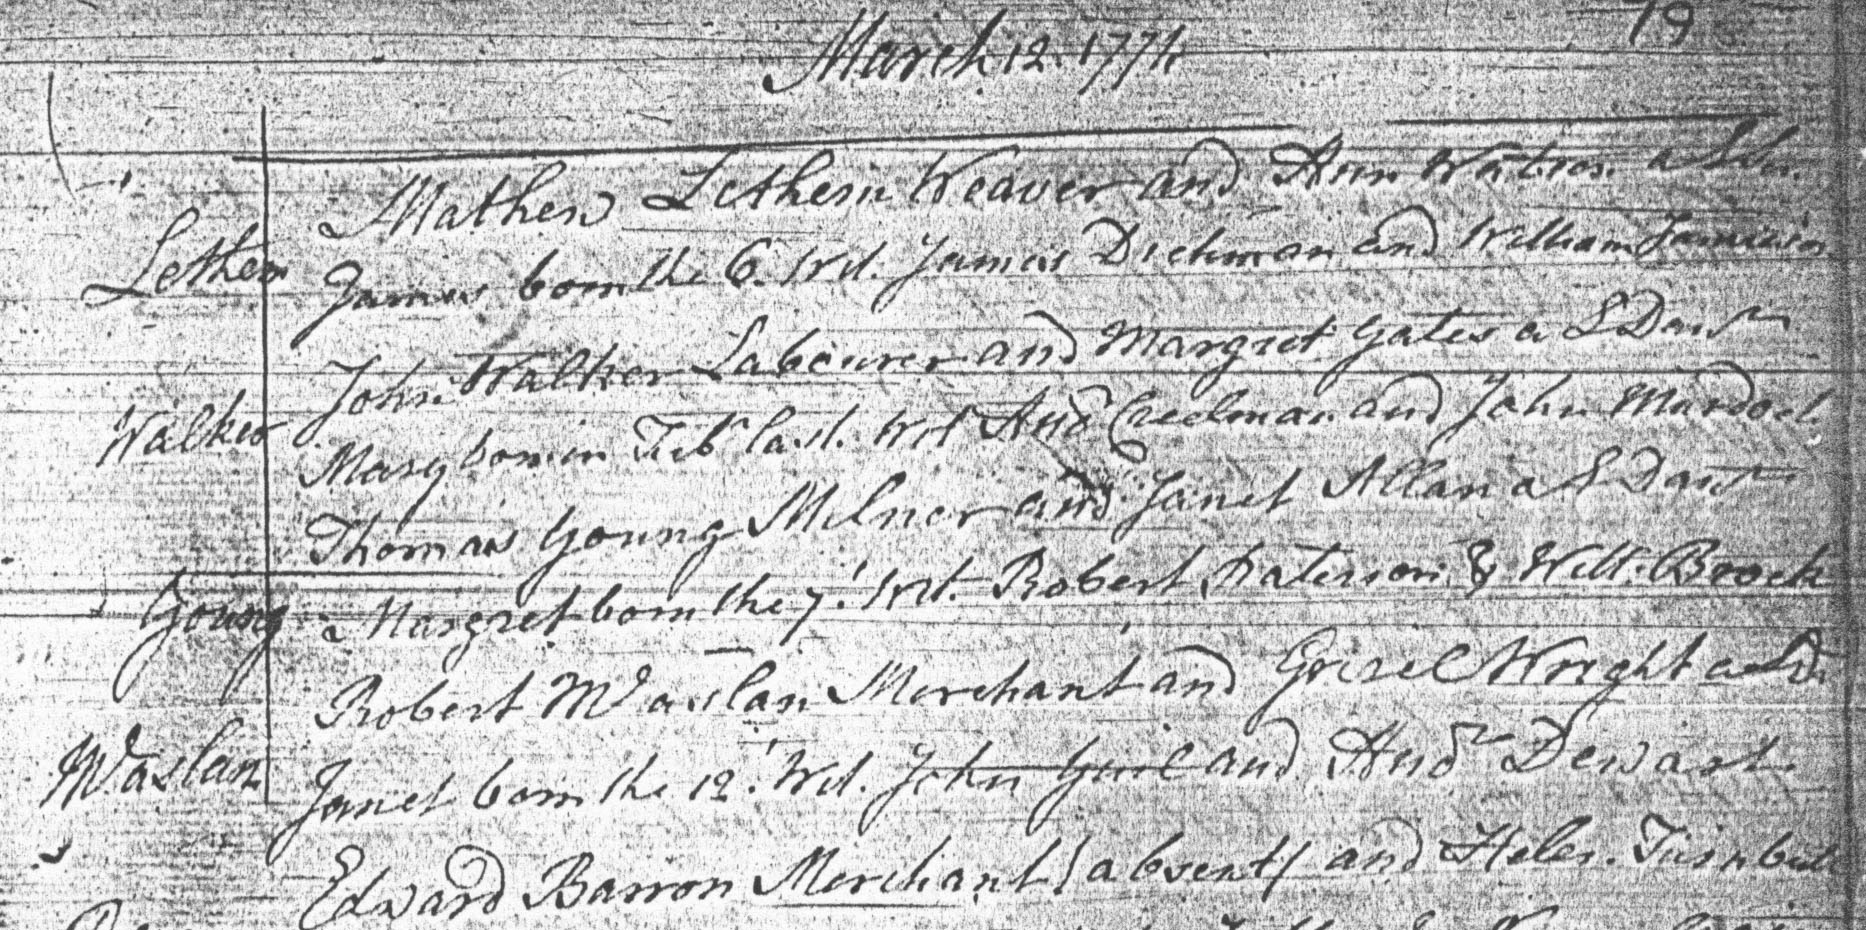 79
March 12. 1774
Mathew Lethem Weaver and Ann Watson a L Sn.
Lethem
James born the 6. Wit. James Dickman and William Jamieson
John Walker Labourer and Margret Yates a L Daur
Walker
Mary born in Febr last. Wit Andw Creelman and John Mardoch
Thomas Young Milner and Janet Allan a L Daur
Young
Margret born the 7. Wit. Robert Paterson & Will: Brock
Robert McAslan Merchant and Grizel Wright a L D.
McAslan
Janet born the 12. Wit. John Guil and Andr Dewart.
Edward Barron Merchant (absent) and Helen Turnbull